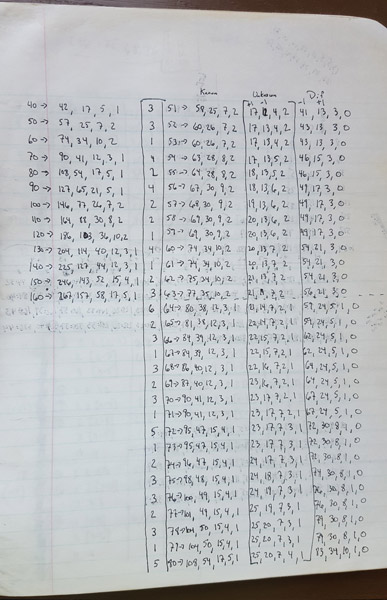 Known Unknown Dif
+1 -1 -1 +1
40 → 42, 17, 5, 1
50 → 57, 25, 7, 2
60 → 74, 34, 10, 2
70 → 90, 41, 12, 3, 1
80 → 108, 54, 17, 5, 1
90 → 127, 65, 21, 5, 1
100 → 146, 77, 26, 7, 2
110 → 164, 88, 30, 8, 2
120 → 186, 36, 10, 2
130 → 204, 114, 40, 12, 3, 1
140 → 225, 127, 44, 12, 3, 1
150 → 246, 143, 52, 15, 4, 1
160 → 267, 157, 58, 17, 5, 1
3 51 → 58, 25, 7, 2 17, 4, 2 41, 13, 3, 0
3 52 → 60, 26, 7, 2 17, 13, 4, 2 43, 13, 3, 0
1 53 → 60, 26, 7, 2 17, 13, 4, 2 43, 13, 3, 0
4 54 → 63, 28, 8, 2 17, 13, 5, 2 46, 15, 3, 0
2 55 → 64, 28, 8, 2 18, 13, 5, 2 46, 15, 3, 0
4 56 → 67, 30, 9, 2 18, 13, 6, 2 49, 17, 3, 0
2 57 → 68, 30, 9, 2 19, 13, 6, 2 49, 17, 3, 0
2 58 → 69, 30, 9, 2 20, 13, 6, 2 49, 17, 3, 0
1 59 → 69, 30, 9, 2 20, 13, 6, 2 49, 17, 3, 0
4 60 → 74, 34, 10, 2 20, 13, 7, 2 54, 21, 3, 0
1 61 → 74, 34, 10, 2 20, 13, 7, 2 54, 21, 3, 0
2 62 → 75, 34, 10, 2 21, 13, 7, 2 54, 21, 3, 0
3 63 → 77, 35, 10, 2 21, 7, 2 56, 21, 3, 0
6 64 → 80, 38, 12, 3, 1 21, 14, 7, 2, 1 59, 24, 5, 1, 0
2 65 → 81, 38, 12, 3, 1 22, 14, 7, 2, 1 59, 24, 5, 1, 0
3 66 → 84, 39, 12, 3, 1 22, 15, 7, 2, 1 62, 24, 5, 1, 0
1 67 → 84, 39, 12, 3, 1 22, 15, 7, 2, 1 62, 24, 5, 1, 0
3 68 → 86, 40, 12, 3, 1 22, 16, 7, 2, 1 64, 24, 5, 1, 0
2 69 → 87, 40, 12, 3, 1 23, 16, 7, 2, 1 64, 24, 5, 1, 0
3 70 → 90, 41, 12, 3, 1 23, 17, 7, 2, 1 67, 24, 5, 1, 0
1 71 → 90, 41, 12, 3, 1 23, 17, 7, 2, 1 67, 24, 5, 1, 0
5 72 → 95, 47, 15, 4, 1 23, 17, 7, 3, 1 72, 30, 8, 1, 0
1 73 → 95, 47, 15, 4, 1 23, 17, 7, 3, 1 72, 30, 8, 1, 0
2 74 → 96, 47, 15, 4, 1 24, 17, 7, 3, 1 72, 30, 8, 1, 0
3 75 → 98, 48, 15, 4, 1 24, 18, 7, 3, 1 74, 30, 8, 1, 0
3 76 → 100, 49, 15, 4, 1 24, 19, 7, 3, 1 76, 30, 8, 1, 0
2 77 → 101, 49, 15, 4, 1 25, 19, 7, 3, 1 76, 30, 8, 1, 0
3 78 → 104, 50, 15, 4, 1 25, 20, 7, 3, 1 79, 30, 8, 1, 0
1 79 → 104, 50, 15, 4, 1 25, 20, 7, 3, 1 79, 30, 8, 1, 0
5 80 → 108, 54, 17, 5, 1 25, 20, 7, 4, 1 83, 34, 10, 1, 0